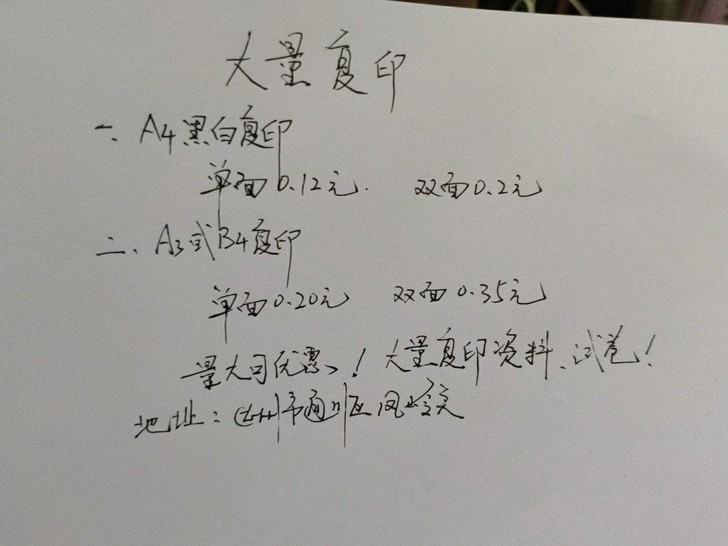 大量复印
一、A4黑白复印
单面0.12元. 双面0.2元
二、A3或B4复印
单面0.20元 双面0.35元
量大可优惠！大量复印资料、试卷！
地址：达州市通川区凤